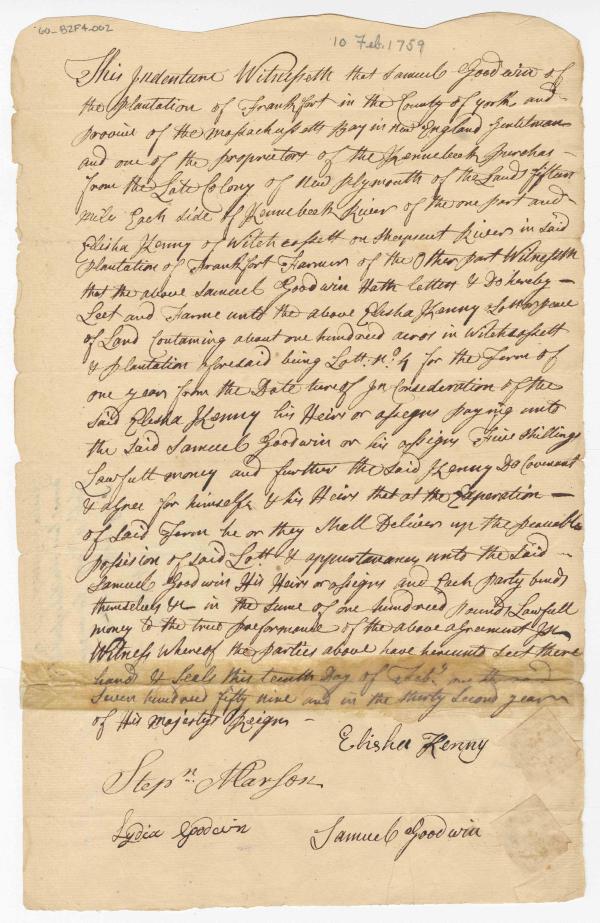 60_B2F4.002
10 Feb. 1759
This Indenture Witnesseth that Samuel Goodwin of
the Plantation of Frankfort in the County of york and
Provine of the Massachussetts Bay in New England Gentelman
and one of the proprietors of the Kennebeck Purchas —
from the Late Colony of New Plymouth of the Lands fifteen
mile Each side of Kennebeck River of the one part and
Elisha Kenny of Witchcassett on Sheepscut River in said
Plantation of Frankfort Farmer of the Other part Witnesseth
that the above Samuel Goodwin Hath letten & Do hereby —
Leet and Farme untill the above Elisha Kenny Lott or peace
of Land Containg about one hundred acres in Witchcassett
& Plantation aforesaid being Lott No. 4 for the Term of
one year from the Date hereof In Consideration of the
said Elisha Kenny his Heirs or assigns paying unto
the said Samuel Goodwin or his assigns Five Shillings
Lawfull money and further the said Kenny Do Covenant
& agree for himselfe & his Heirs that at the Experation —
of said Term he or they shall Deliver up the peaceable
possision of said Lott & appurtenances unto the said —
Samuel Goodwin His Heirs or assigns and Each party binds
themselves &c in the sume of one hundred pounds Lawfull
money to the true performance of the above agreement In
Witness Whereof the parties above have hereunto Sett there
hands & Seals this tenth Day of Feb.y one
Seven hundred fifty nine and in the thirty Second year
of His Majestys Reign —
Elisha Kenny
Stepn. Marson
Lydia Goodwin
Samuel Goodwin